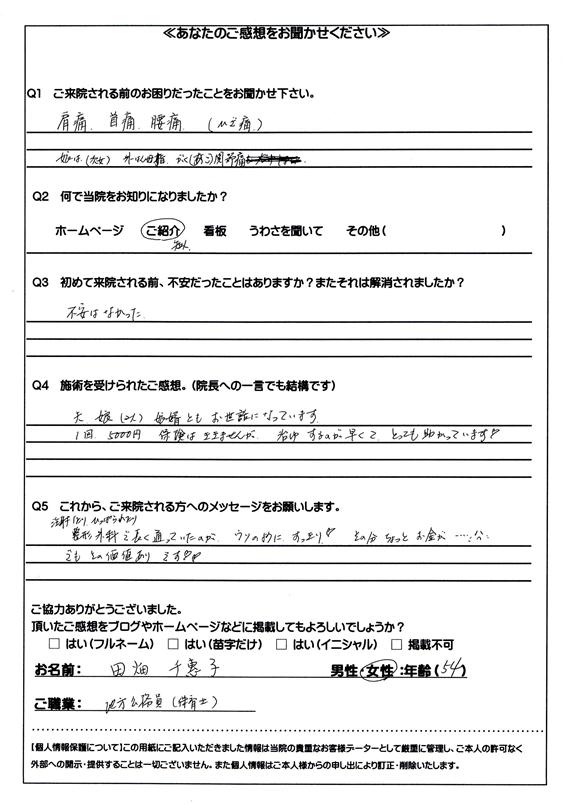 ≪あなたのご感想をお聞かせください≫
Q1 ご来院される前のお困りだったことをお聞かせ下さい。
肩痛、首痛、腰痛 (ひざ痛)
娘は(次女) 外反母指 がく(あご)関節痛
Q2 何で当院をお知りになりましたか？
ホームページ ご紹介 看板 うわさを聞いて その他( )
知人
Q3 初めて来院される前、不安だったことはありますか？またそれは解消されましたか？
不安はなかった。
Q4 施術を受けられたご感想。(院長への一言でも結構です)
夫 娘(2人) 毎婿ともお世話になっています。
1回 5000円 保険はききませんが、治ゆするのが早くて、とっても助かっています♡
Q5 これから、ご来院される方へのメッセージをお願いします。
注射したり ひっぱられたり
整形外科で長く通っていたのが、ウソの様に すっきり! その分 ちょっと お金が……
でもその価値あり です♡♡
ご協力ありがとうございました。
頂いたご感想をブログやホームページなどに掲載してもよろしいでしょうか？
□ はい(フルネーム) □ はい(苗字だけ) □ はい(イニシャル) □ 掲載不可
お名前： 田畑 千恵子 男性・女性：年齢(54)
ご職業： 地方公務員(保育士)
【個人情報保護について】この用紙にご記入いただきました情報は当院の貴重なお客様データーとして厳重に管理し、ご本人の許可なく
外部への開示・提供することは一切ございません。また個人情報はご本人様からの申し出により訂正・削除いたします。